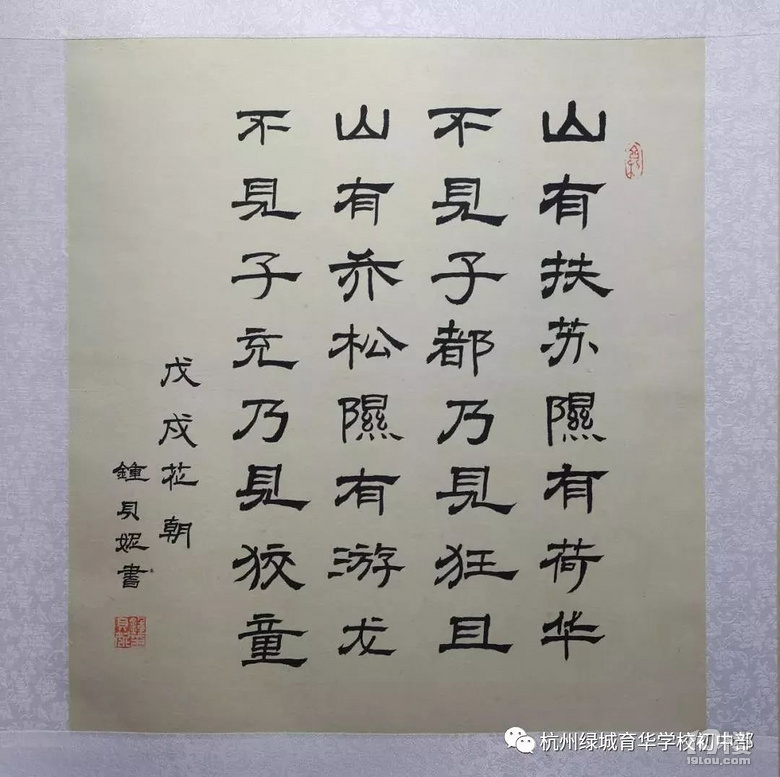 山有扶苏隰有荷华
不見子都乃見狂且
山有乔松隰有游龙
不見子充乃見狡童
戊戌花朝
鍾贝妮書
杭州绿城育华学校初中部
19lou.com